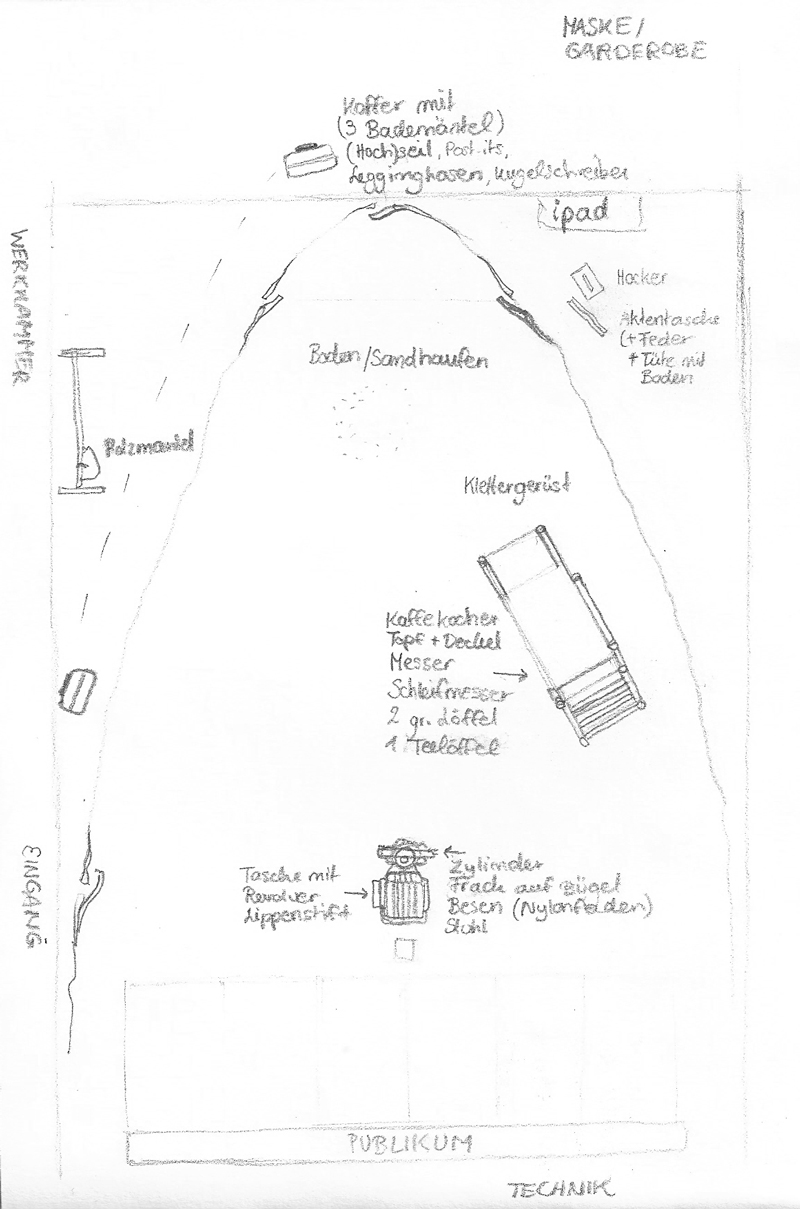 MASKE/
GARDEROBE
Koffer mit
(3 Bademäntel)
(Hoch)seil, Post-its,
Leggingshosen, Kugelschreiber
ipad
WERKKAMMER
Hocker
Aktentasche
(+ Feder
+ Tüte mit
Boden
Boden/Sandhaufen
Pelzmantel
Klettergerüst
Kaffekocher
Topf + Deckel
Messer
Schleifmesser
2 gr. Löffel
1 Teelöffel
EINGANG
Tasche mit
Revolver
Lippenstift
Zylinder
Frack auf Bügel
Besen (Nylonfaden)
Stuhl
PUBLIKUM
TECHNIK